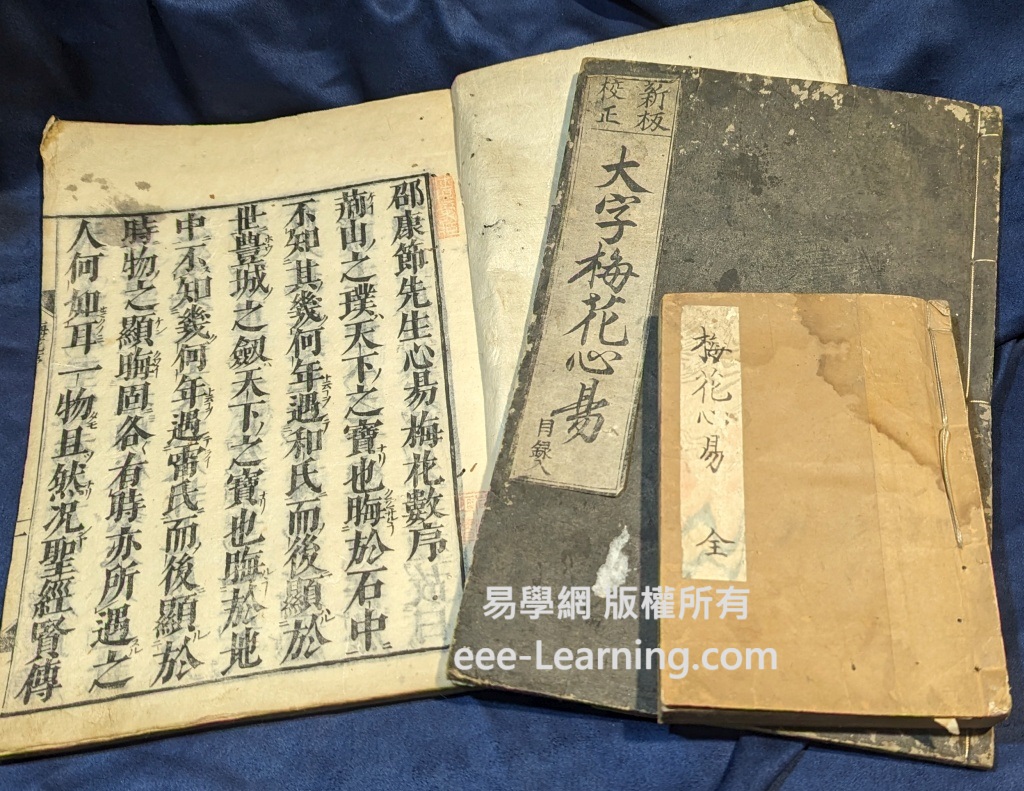 邵康節先生心易梅花數序
荊山之璞天下之寶也晦於石中
不知其幾何年遇和氏而後顯於
世豐城之劔天下之寶也晦於地
中不知幾何年遇甯氏而後顯於
時物之顯晦固各有時亦所遇之
人何如耳一物且然况聖經賢傳
新板
校正
大字梅花心易
目録入
梅花心易 全
易學網 版權所有
eee-Learning.com